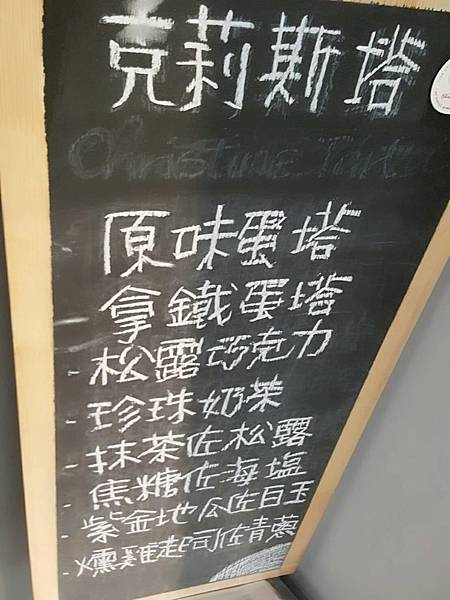 克莉斯塔
Christine Tart
原味蛋塔
拿鐵蛋塔
- 松露巧克力
- 珍珠奶茶
- 抹茶佐松露
- 焦糖佐海塩
- 紫金地瓜佐目玉
- 燻雞起司佐青蔥